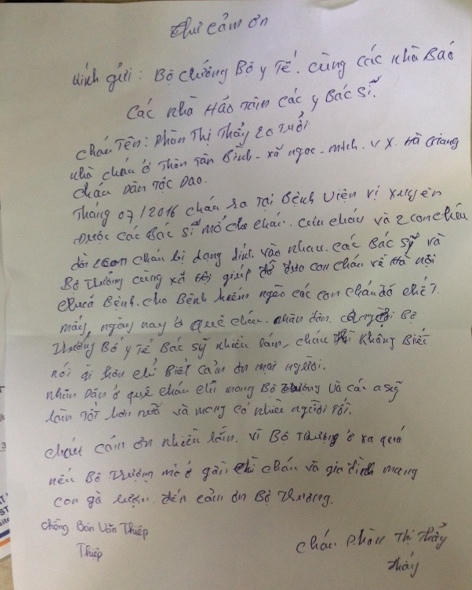 Thư cảm ơn
Kính gửi: Bộ trưởng Bộ y Tế. cùng các nhà Báo
Các nhà Hảo tâm các y Bác sĩ.
cháu Tên: Phàn Thị Thảy 20 Tuổi
nhà cháu ở Thôn Tân Bình - xã ngọc - minh. V X. Hà Giang
cháu Dân Tộc Dao.
Tháng 07/2016 cháu ra Tại Bệnh viện vị xuyên
Được các Bác sĩ mổ cho cháu. cứu cháu và 2 con cháu
đôi con cháu bị dạng dính vào nhau. các Bác sỹ và
Bộ Trưởng cùng xã hội giúp đỡ đưa con cháu về Hà nội
chữa Bệnh. cho Bệnh hiểm ngèo các con cháu đã chết.
mấy ngày nay ở quê cháu. nhân dân. Bộ
Trưởng Bộ y Tế Bác sỹ nhiều lắm, cháu Không Biết
nói gì hơn chỉ Biết cảm ơn mọi người.
nhân Dân ở quê cháu chỉ mong Bộ Trưởng và các Bsỹ
làm Tốt hơn nữa và mong có nhiều người Tốt.
cháu cảm ơn nhiều lắm. vì Bộ Trưởng ở xa quá
nếu Bộ Trưởng mà ở gần thì cháu và gia đình mang
con gà rượu đến cảm ơn Bộ Trưởng.
chồng Bàn Văn Thiệp
Thiệp
Cháu Phàn Thị Thảy
Thảy